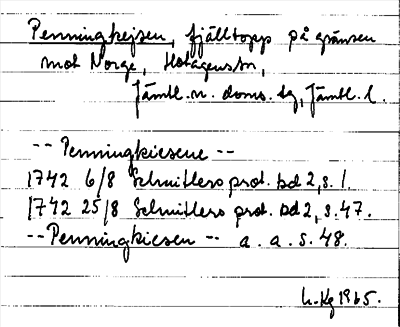 Penningkejsen, fjälltopp på gränsen
mot Norge, Hotagens sn,
Jämtl. n. doms. tg, Jämtl. l.
-- Penningkiesene --
1742 6/8 Schnitlers prot. bd 2, s. 1.
1742 25/8 Schnitlers prot. bd 2, s. 47.
-- Penningkiesen -- a. a. s. 48.
1965.